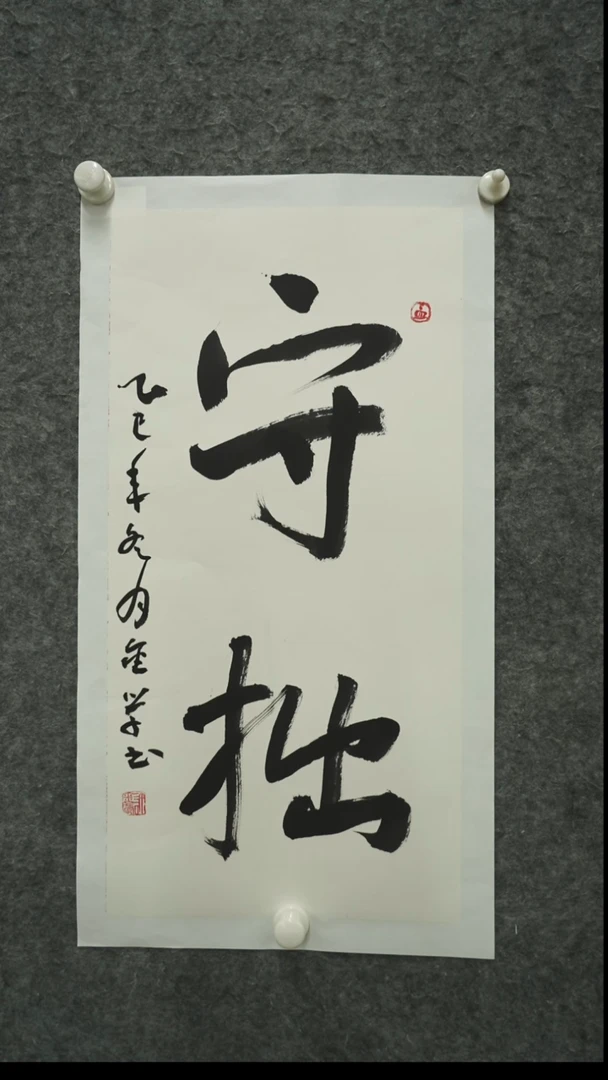 守拙
乙巳年冬月金学书